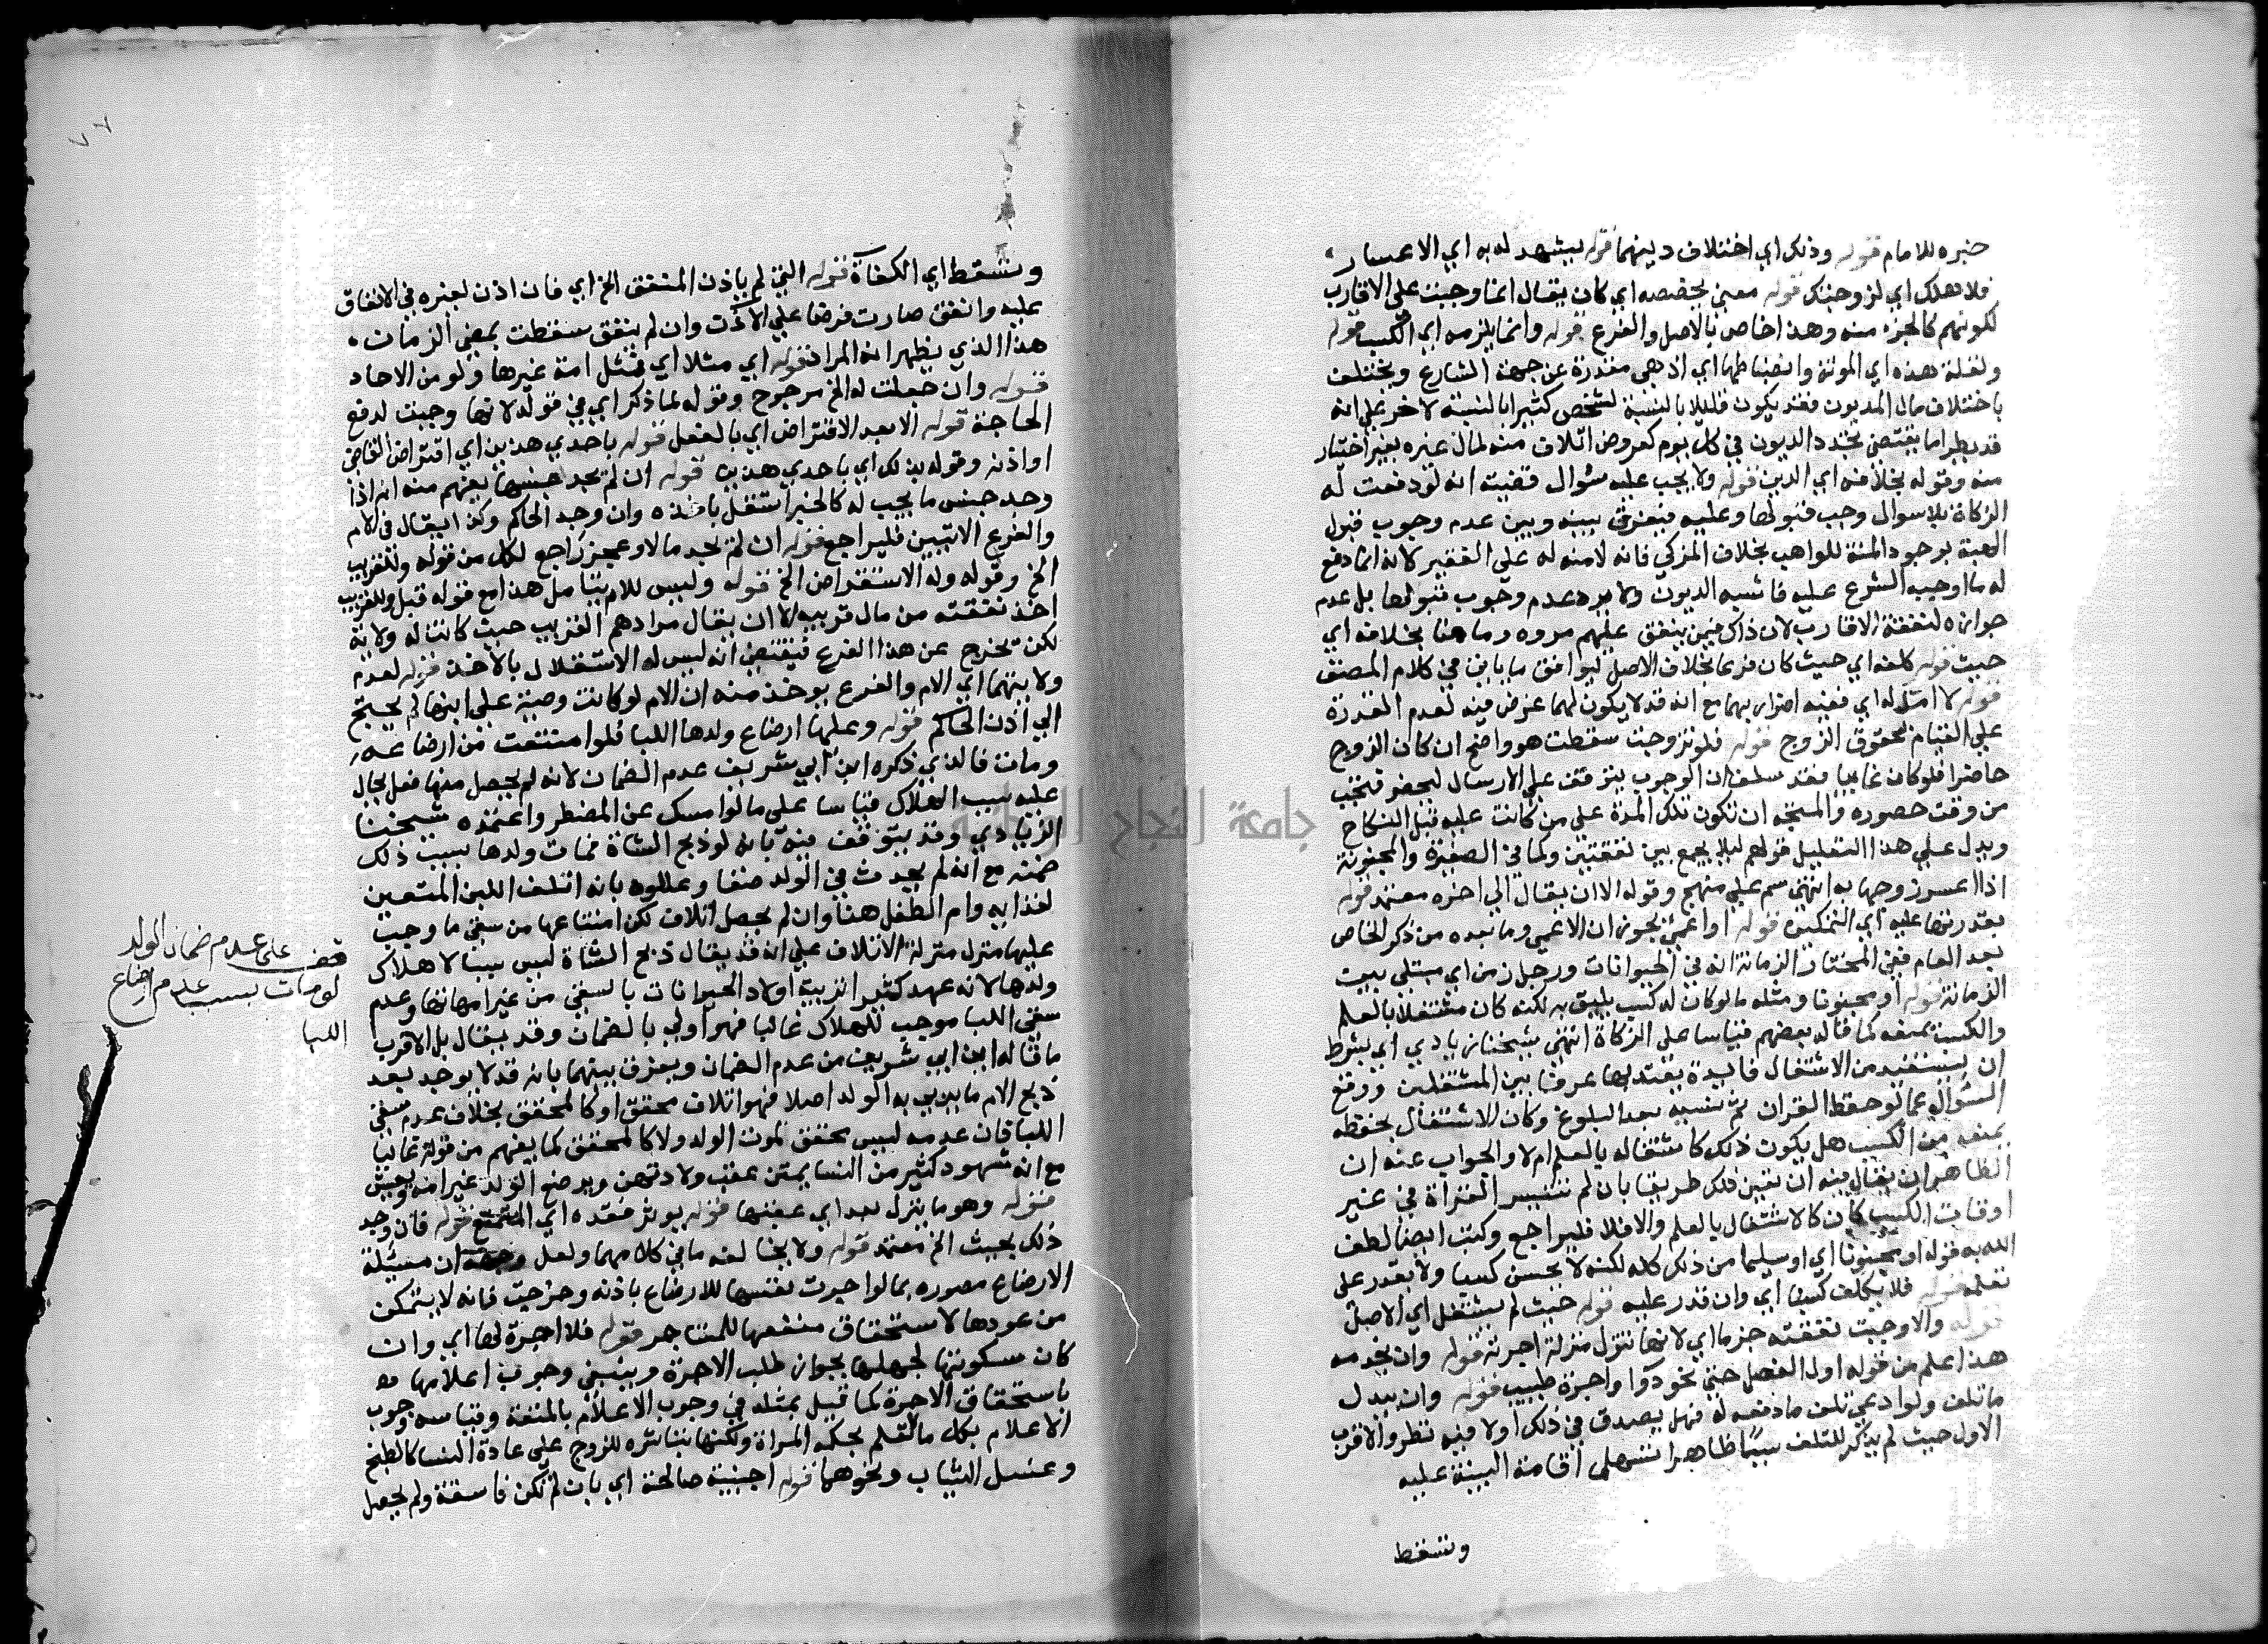 خبره للامام قوله وذلك اي اختلاف دينهما قوله بيشهد له به اي الاعسار
فلاهلك اي لزوجتك قوله معني يخصصه اي كان يقال انما وجبت علي الاقارب
لكونهم كالجزء منه وهذا خاص بالاصل والفرع قوله وانما يلزمه اي الكسب قوله
ولقلة هذه اي المونة وانضباطها اي اذ هي مقدرة من جهة الشارع ويختلف
باختلاف مال المديون فقد يكون قليلا بالنسبة لشخص كثيرا بالنسبة لاخر علي انه
قد يطرا ما يقتضي تجدد الديون في كل يوم كعروض اتلاف منه لمال غيره بغير اختيار
منه وقوله بخلافه اي الدين قوله ولا يجب عليه سؤال قضيته انه لو دفعت له
الزكاة بلا سوال وجب قبولها وعليه فيفرق بينه وبين عدم وجوب قبول
الهبة بوجود المنة للواهب بخلاف المزكي فانه لا منه له علي الفقير لانه انما دفع
له ما اوجبه الشرع عليه فاشبه الديون ولا يرد عدم وجوب قبولها بل عدم
جوازه لنفقة الاقارب لان ذاك فيمن ينفق عليهم مروه وما هنا بخلافه اي
حيث قوله كلفه اي حيث كان فرعا بخلاف الاصل ليوافق ما ياتي في كلام المصنف
قوله لا امثل له اي ففيه اضرار بهما مع انه قد لا يكون لهما غرض فيه لعدم القدرة
علي القيام بحقوق الزوج قوله فلو تزوجت سقطت هو واضح ان كان الزوج
حاضرا فلو كان غايبا فقد سلف ان الوجوب يتوقف علي الارسال ليحضر فتجب
من وقت حضوره والمتجه ان تكون تلك المدة علي من كانت عليه قبل النكاح
ويدل علي هذا التعليل قولهم ليلا يجمع بين نفقتين ولما في الصغيرة والمجنونة
اذا اعسر زوجها به انتهي سم علي منهج وقوله الا ان يقال الي اخره معتمد قوله
بعد رفضها عليه اي التمكين قوله او اعمي يجوز ان الاعمي وما بعده من ذكر الخاص
بعد العام ففي المختار الزمانة افة في الحيوانات ورجل زمن اي مبتلي بيت
الزمانة قوله او مجنونا ومثله ما لو كان له كسب يليق به لكنه كان مشتغلا بالعلم
والكسب يمنعه كما قاله بعضهم قياسا علي الزكاة انتهي شيخنا زيادي اي بشرط
ان يستفيد من الاشتغال فايدة يعتد بها عرفا بين المشتغلين ووقع
السؤال عما لو حفظ القران ثم نسيه بعد البلوغ وكان الاشتغال بحفظه
يمنعه من الكسب هل يكون ذلك كاشتغاله بالعلم ام لا والجواب عنه ان
الظاهر ان يقال فيه ان تعين ذلك طريقا بان لم تتيسر القراة في غير
اوقات الكسب كان كالاشتغال بالعلم والا فلا فليراجع وكتب ايضا لطف
الله به قوله او مجنونا اي او سليما من ذلك كله لكنه لا يحسن كسبا ولا يقدر علي
تعلمه قوله فلا يكلف كسبا اي وان قدر عليه قوله حيث لم يشتغل اي الاصل
قوله والا وجبت نفقته جزما اي لانها تنزل منزلة اجرته قوله وان يخدمه
هذا علم من قوله اول الفصل حتي نحو دوا واجرة طبيب قوله وان يبدل
ما تلف ولو ادعي تلف ما دفعه له فهل يصدق في ذلك او لا فيه نظر والاقرب
الاول حيث لم يذكر للتلف سببا ظاهرا تسهل اقامة البينة عليه
وتسقط
٧٧
وتسقط اي الكفاة قوله التي لم ياذن المنفق الخ اي فان اذن لغيره في الانفاق
عليه وانفق صارت فرضا علي الاذن وان لم ينفق سقطت بمضي الزمان
هذا الذي يظهر انه المراد قوله اي مثلا اي فمثل امة غيرها ولو من الاحاد
قوله وان جعلت له الخ مرجوح وقوله لما ذكر اي في قوله لانها وجبت لدفع
الحاجة قوله الا بعد الاقتراض اي بالفعل قوله باحدي هذين اي اقتراض القاضي
او اذنه وقوله بذلك اي باحدي هذين قوله ان لم تجد جنسها يفهم منه انه اذا
وجد جنس ما يجب له كالخبز استقل باخذه وان وجد الحاكم وكذا يقال في الام
والفرع الاتيين فليراجع قوله ان لم تجد مالا وعجز راجع لكل من قوله وللقريب
الخ وقوله وله الاستقراض الخ قوله وليس للام يتامل هذا مع قوله قبل وللقريب
اخذ نفقته من مال قريبه الا ان يقال مرادهم القريب حيث كانت له ولاية
لكن تخرج عن هذا الفرع فيقتضي انه ليس له الاستقلال بالاخذ قوله لعدم
ولايتهما اي الام والفرع يوخذ منه ان الام لو كانت وصية علي ابنها لم يحتج
الي اذن الحاكم قوله وعليها ارضاع ولدها اللبا فلو امتنعت من ارضاعه
ومات فالذي ذكره ابن ابي شريف عدم الضمان لانه لم يحصل منها فعل يحال
عليه سبب الهلاك قياسا علي ما لو امسك عن المضطر واعتمده شيخنا
الزيادي وقد يتوقف فيه بانه لو ذبح الشاة فمات ولدها بسبب ذلك
ضمنه مع انه لم يحدث في الولد صنعا وعللوه بانه اتلف اللبن المتعين
لغذايه وام الطفل هنا وان لم يحصل اتلاف لكن امتناعها من سقي ما وجب
عليها منزل منزلة الاتلاف علي انه قد يقال ذبح الشاة ليس سببا لاهلاك
ولدها لانه عهد كثيرا تربية اولاد الحيوانات بالسقي من غير امهاتها وعدم
سقي اللبا موجب للهلاك غالبا فهو اولي بالضمان وقد يقال بل الاقرب
ما قاله ابن ابي شريف من عدم الضمان ويفرق بينهما بانه قد لا يوجد بعد
ذبح الام ما يربي به الولد اصلا فهو اتلاف محقق او كالمحقق بخلاف عدم سقي
اللبا فان عدمه ليس محقق لموت الولد ولا كالمحقق كما يفهم من قوله غالبا
مع انه شهود كثير من النسا يمتن عقب ولادتهن ويرضع الولد غير امه ويعيش
قوله وهو ما ينزل بعد اي عقبها قوله يوثر فقده اي التمتع قوله فان وجد
ذلك بحيث الخ معتمد قوله ولا يخالفه ما في كلامهما ولعل وجهه ان مسئلة
الارضاع مصوره بما لو اجرت نفسها للارضاع باذنه وحرجت فانه لا يتمكن
من عودها لاستحقاق منفعها للمستاجر قوله فلا اجرة لها اي وان
كان سكوتها لجهلها بجواز طلب الاجرة وينبغي وجوب اعلامها
باستحقاق الاجرة كما قيل بمثله في وجوب الاعلام بالمتعة وقياسه وجوب
الاعلام بكل ما لا تعلم بحكمه المراة ولكنها تباشره للزوج علي عادة النسا كالطبخ
وغسل الثياب ونحوهما قوله اجنبية صالحة اي بان لم تكن فاسقة ولم يحصل
قف علي عدم ضمان الولد
لو مات بسبب عدم ارضاع
اللبا
جامعة النجاح الوطنية